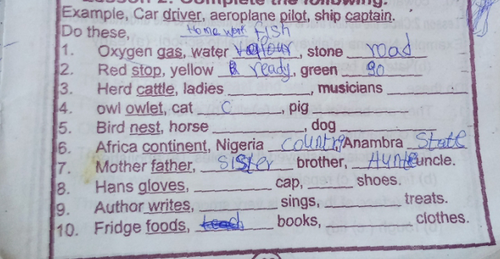 Lesson 2: Complete the following.
Example, Car driver, aeroplane pilot, ship captain.
Do these, Home work fish
1. Oxygen gas, water Vapour, stone road
2. Red stop, yellow ready, green go
3. Herd cattle, ladies ________, musicians ________
4. owl owlet, cat c, pig ________
5. Bird nest, horse ________, dog ________
6. Africa continent, Nigeria country Anambra State
7. Mother father, sister brother, Aunte uncle.
8. Hans gloves, ________ cap, ________ shoes.
9. Author writes, ________ sings, ________ treats.
10. Fridge foods, ________ books, ________ clothes.